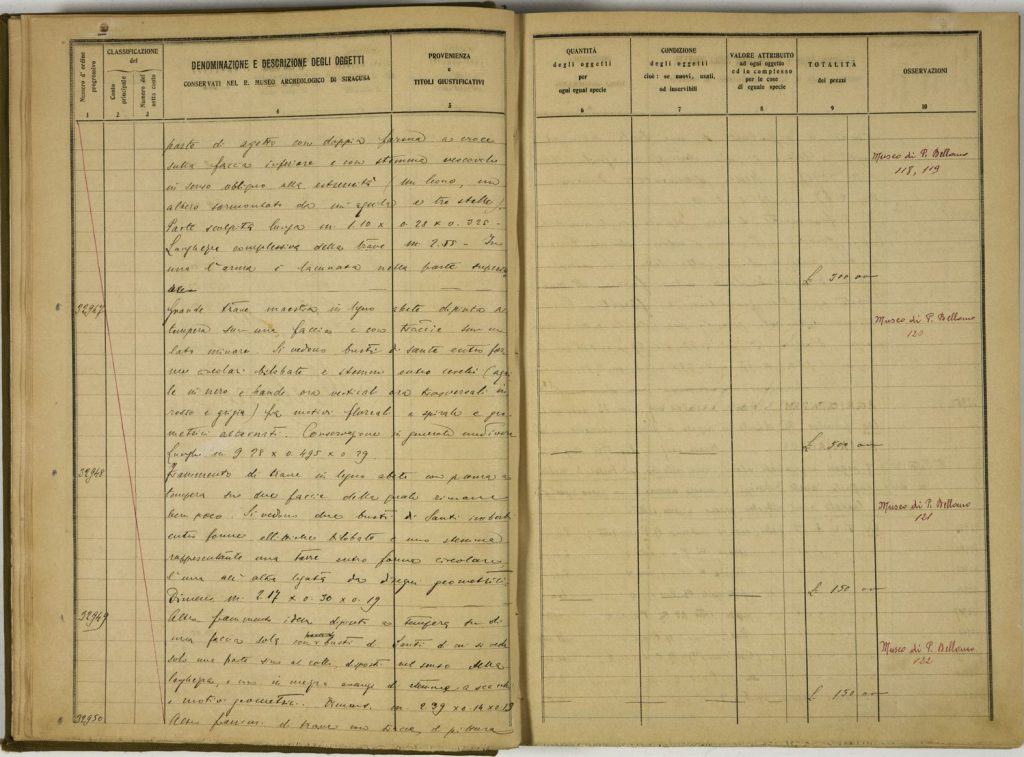 Numero d'ordine progressivo
CLASSIFICAZIONE
del
Conto principale
Numero del sotto conto
DENOMINAZIONE E DESCRIZIONE DEGLI OGGETTI
CONSERVATI NEL R. MUSEO ARCHEOLOGICO DI SIRACUSA
PROVENIENZA
e
TITOLI GIUSTIFICATIVI
1 2 3 4 5
parte di sgetto con doppia forma a croce
sulla faccia inferiore e con stemma
in senso obliquo alla estremità (un leone, un
albero sormontato da un'aquila e tre stelle)
Parte scolpita lunga m. 1.10 x 0.28 x 0.325 -
Lunghezza complessiva della trave m. 2.85 - In
una l'arma è lacunata nella parte superio
re
32947
Grande trave maestra in legno abete dipinta a
tempera su una faccia e con traccie su un
lato minore. Si vedono busti di sante entro for
me circolari bilobate e stemmi entro cerchi (aqui
le in nero e bande ora verticali ora trasversali in
rosso e grigia) fra motivi floreali a spirale e geo
metrici. Conservazione in generale mediocre
Lungh. m 9.28 x 0.495 x 0.29
32948
Frammento di trave in legno abete con pittura a
tempera su due faccie della quale rimane
ben poco. Si vedono due busti di Santi
entro forme bilobate e uno stemma
rappresentante una torre entro forma circolare
l'una all'altra legata da disegni geometrici
Dimens. m. 2.17 x 0.30 x 0.19
32949
Altro frammento idem dipinto a tempera su di
una faccia sola con busti di Santi di cui si vede
solo una parte sino al collo, disposti nel senso della
larghezza, e uno in mezzo avanzi di stemma a
e motivi geometrici. Dimens. m. 2.39 x 0.14 x 0.19
32950
Altro framm. di trave con traccia di pittura
QUANTITÀ
degli oggetti
per
ogni egual specie
CONDIZIONE
degli oggetti
cioè: se nuovi, usati,
od inservibili
VALORE ATTRIBUITO
ad ogni oggetto
ed in complesso
per le cose
di eguale specie
TOTALITÀ
dei prezzi
OSSERVAZIONI
6 7 8 9 10
Museo di P. Bellomo
118, 119
£ 300
Museo di P. Bellomo
120
£ 500
Museo di P. Bellomo
121
£ 150
Museo di P. Bellomo
122
£ 150